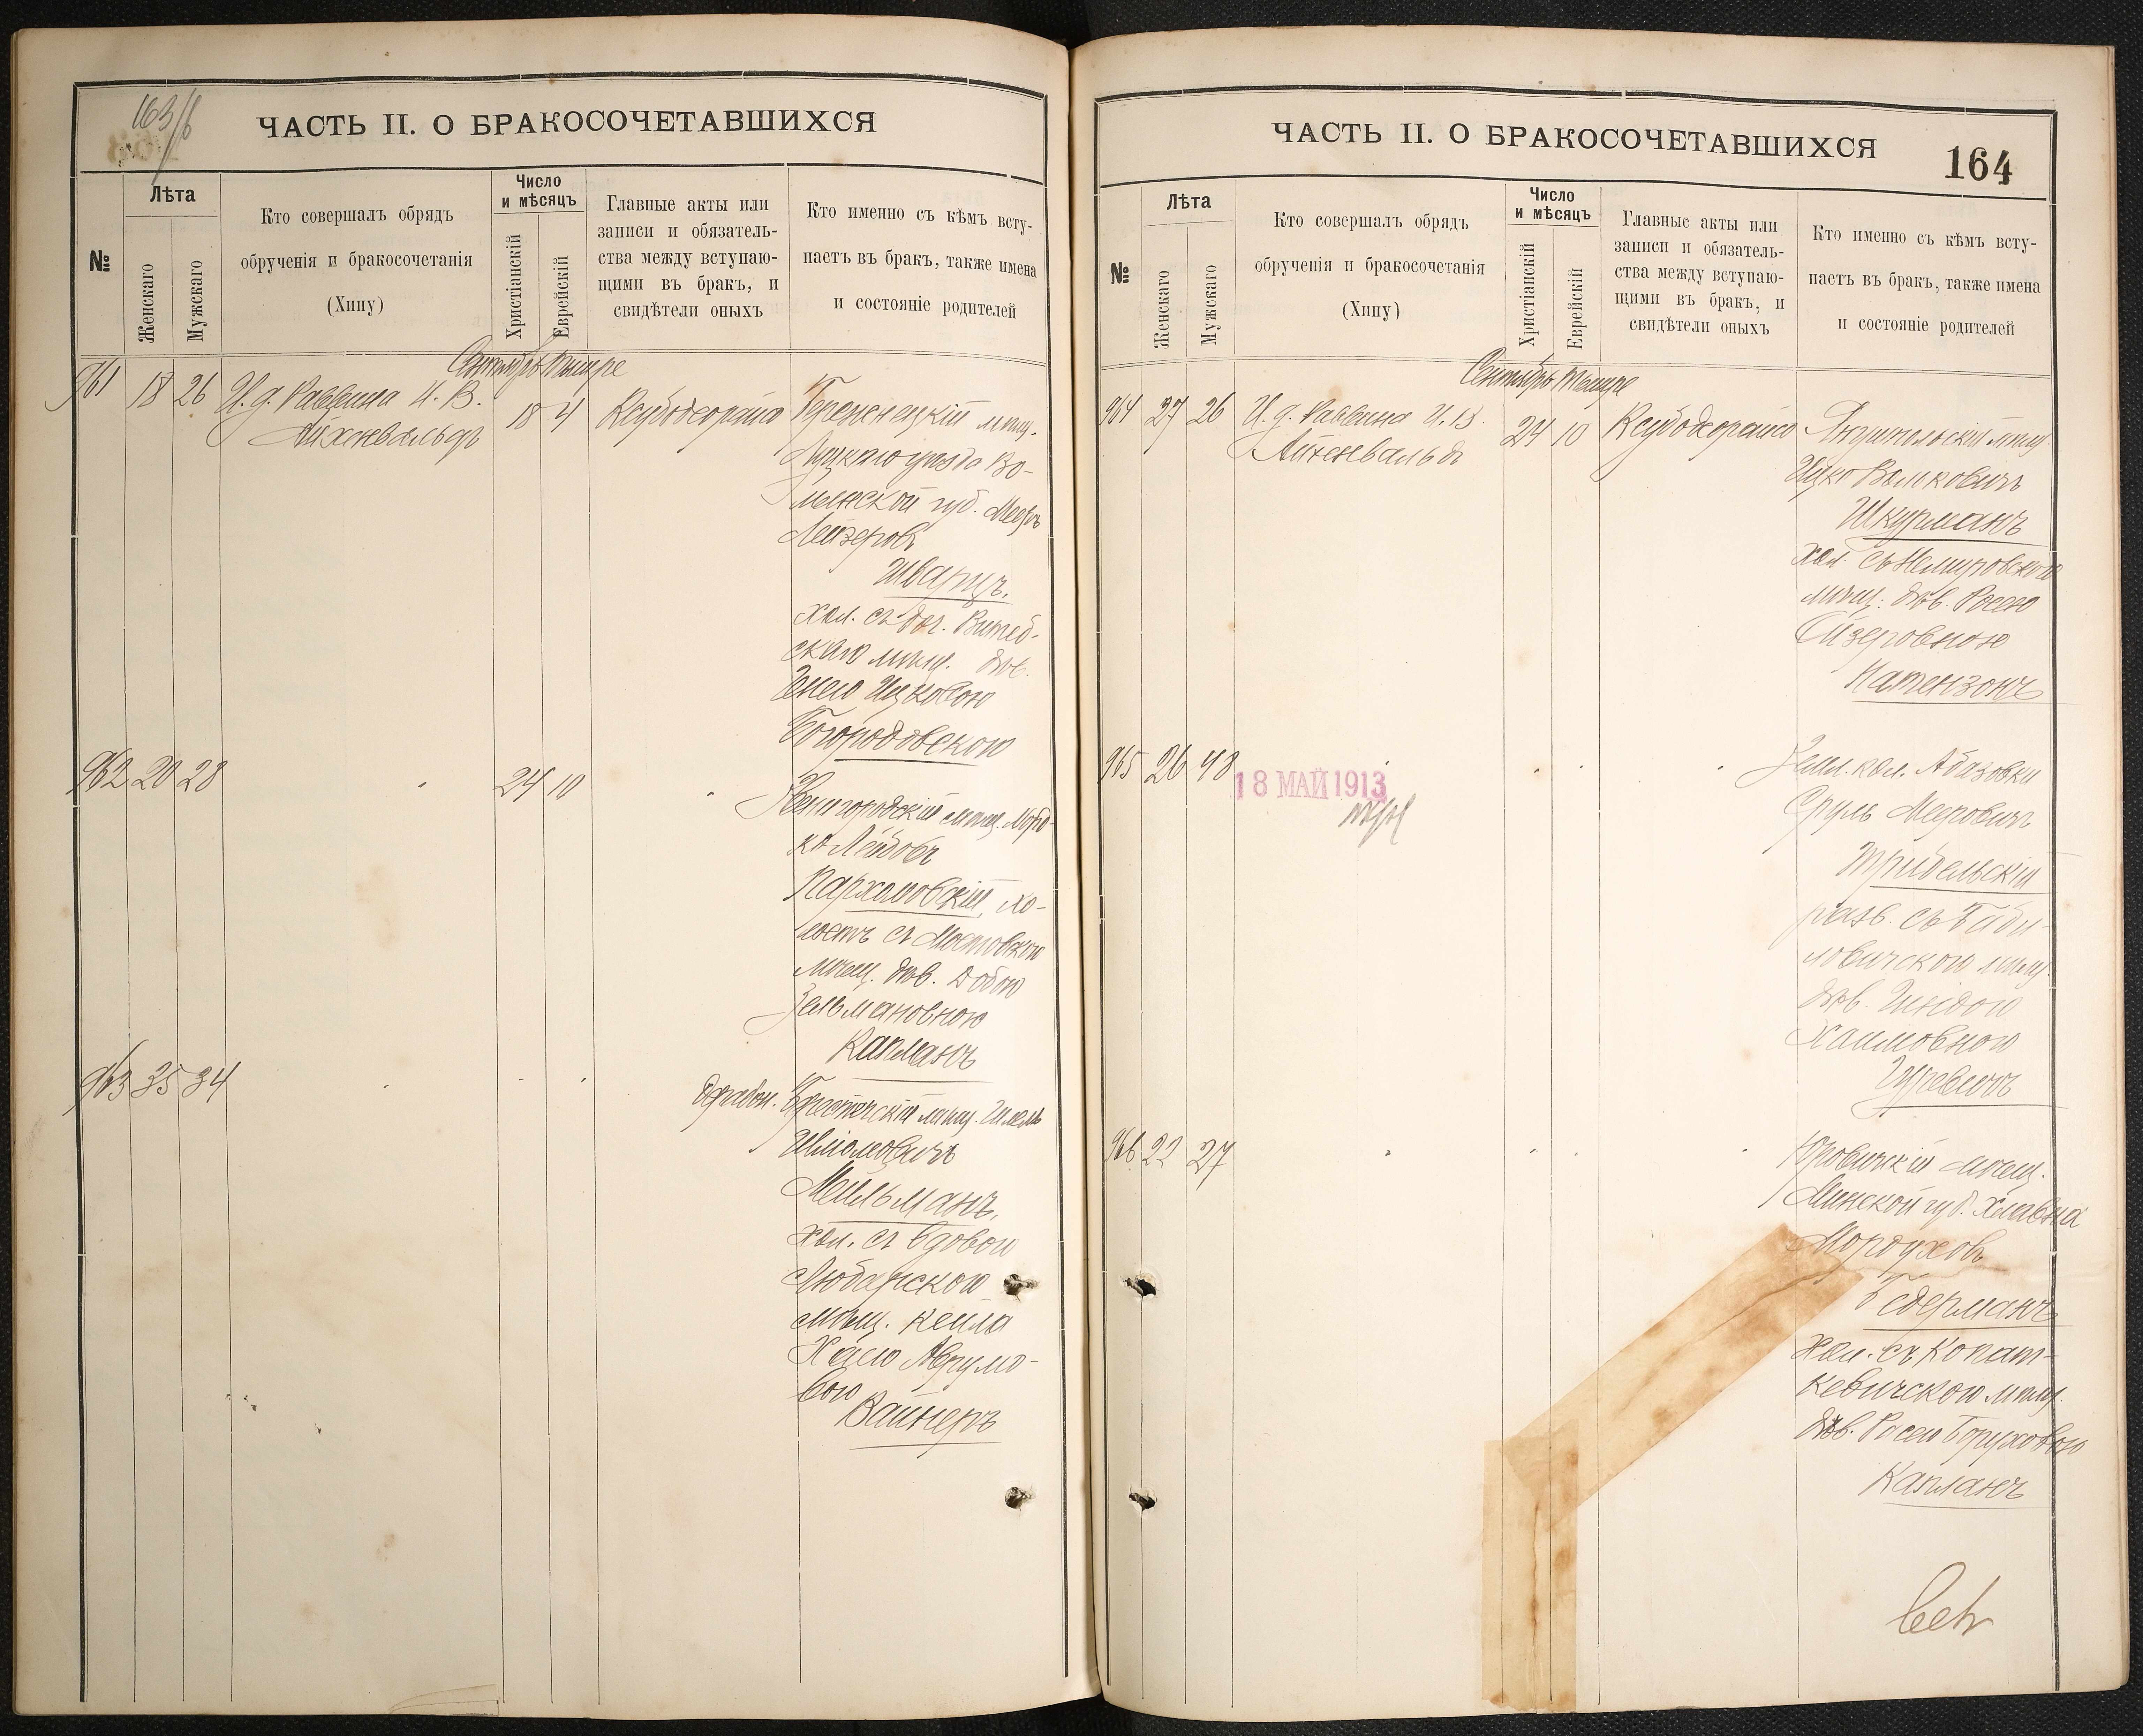 163/б
ЧАСТЬ II. О БРАКОСОЧЕТАВШИХСЯ
№
Лѣта
Женскаго
Мужскаго
Кто совершалъ обрядъ
обрученія и бракосочетанія
(Хипу)
Число
и мѣсяцъ
Христіанскій
Еврейскій
Главные акты или
записи и обязатель-
ства между вступаю-
щими въ бракъ, и
свидѣтели оныхъ
Кто именно съ кѣмъ всту-
паетъ въ бракъ, также имена
и состояніе родителей
Сентябрь Тишре
961 18 26 И. д. Раввина И. В. 18 4
Айхенвальдъ
мѣщ.
Луцкаго уѣзда Во-
лынской губ. Мееръ
Лейзеровъ
Шварцъ.
хол. съ доч. Витеб-
скаго мѣщ. дѣв.
Ицковою
Богородовскою
962 20 28 " 24 10 "
Звенигородскій мѣщ. Морд-
ко Лейбовъ
Пархомовскій, хо-
лостъ съ Мостовскою
мѣщ. дѣв. Добою
Зельмановною
Капланъ
963 35 34
мѣщ.
Шліомовичъ
Мейльманъ,
хол. съ вдовою
Любарскою
мѣщ. Кейла
Хаею Аврумо-
вою
Вайнеръ
ЧАСТЬ II. О БРАКОСОЧЕТАВШИХСЯ
164
№
Лѣта
Женскаго
Мужскаго
Кто совершалъ обрядъ
обрученія и бракосочетанія
(Хипу)
Число
и мѣсяцъ
Христіанскій
Еврейскій
Главные акты или
записи и обязатель-
ства между вступаю-
щими въ бракъ, и
свидѣтели оныхъ
Кто именно съ кѣмъ всту-
паетъ въ бракъ, также имена
и состояніе родителей
Сентябрь Тишре
964 27 26 И. д. Раввина И. В. 24 10
Айхенвальдъ
Янушпольскій мѣщ.
Ицко Волковичъ
Шкурманъ
хол. съ Немировскою
мѣщ. дѣв. Росею
Ойзеровною
Натензонъ
965 26 48
18 МАЙ 1913
Земл. кол. Абазовки
Сруль Мееровичъ
Трибельскій
разв. съ Габи-
ловичскою мѣщ.
дѣв. Гиндою
Хаимовною
Гуревичъ
966 22 27
Юровичскій мѣщ.
Минской губ. Хлавна
Мордуховъ
Бедерманъ
Хол. съ Копат-
кевичскою мѣщ.
дѣв. Росею Боруховою
Капланъ